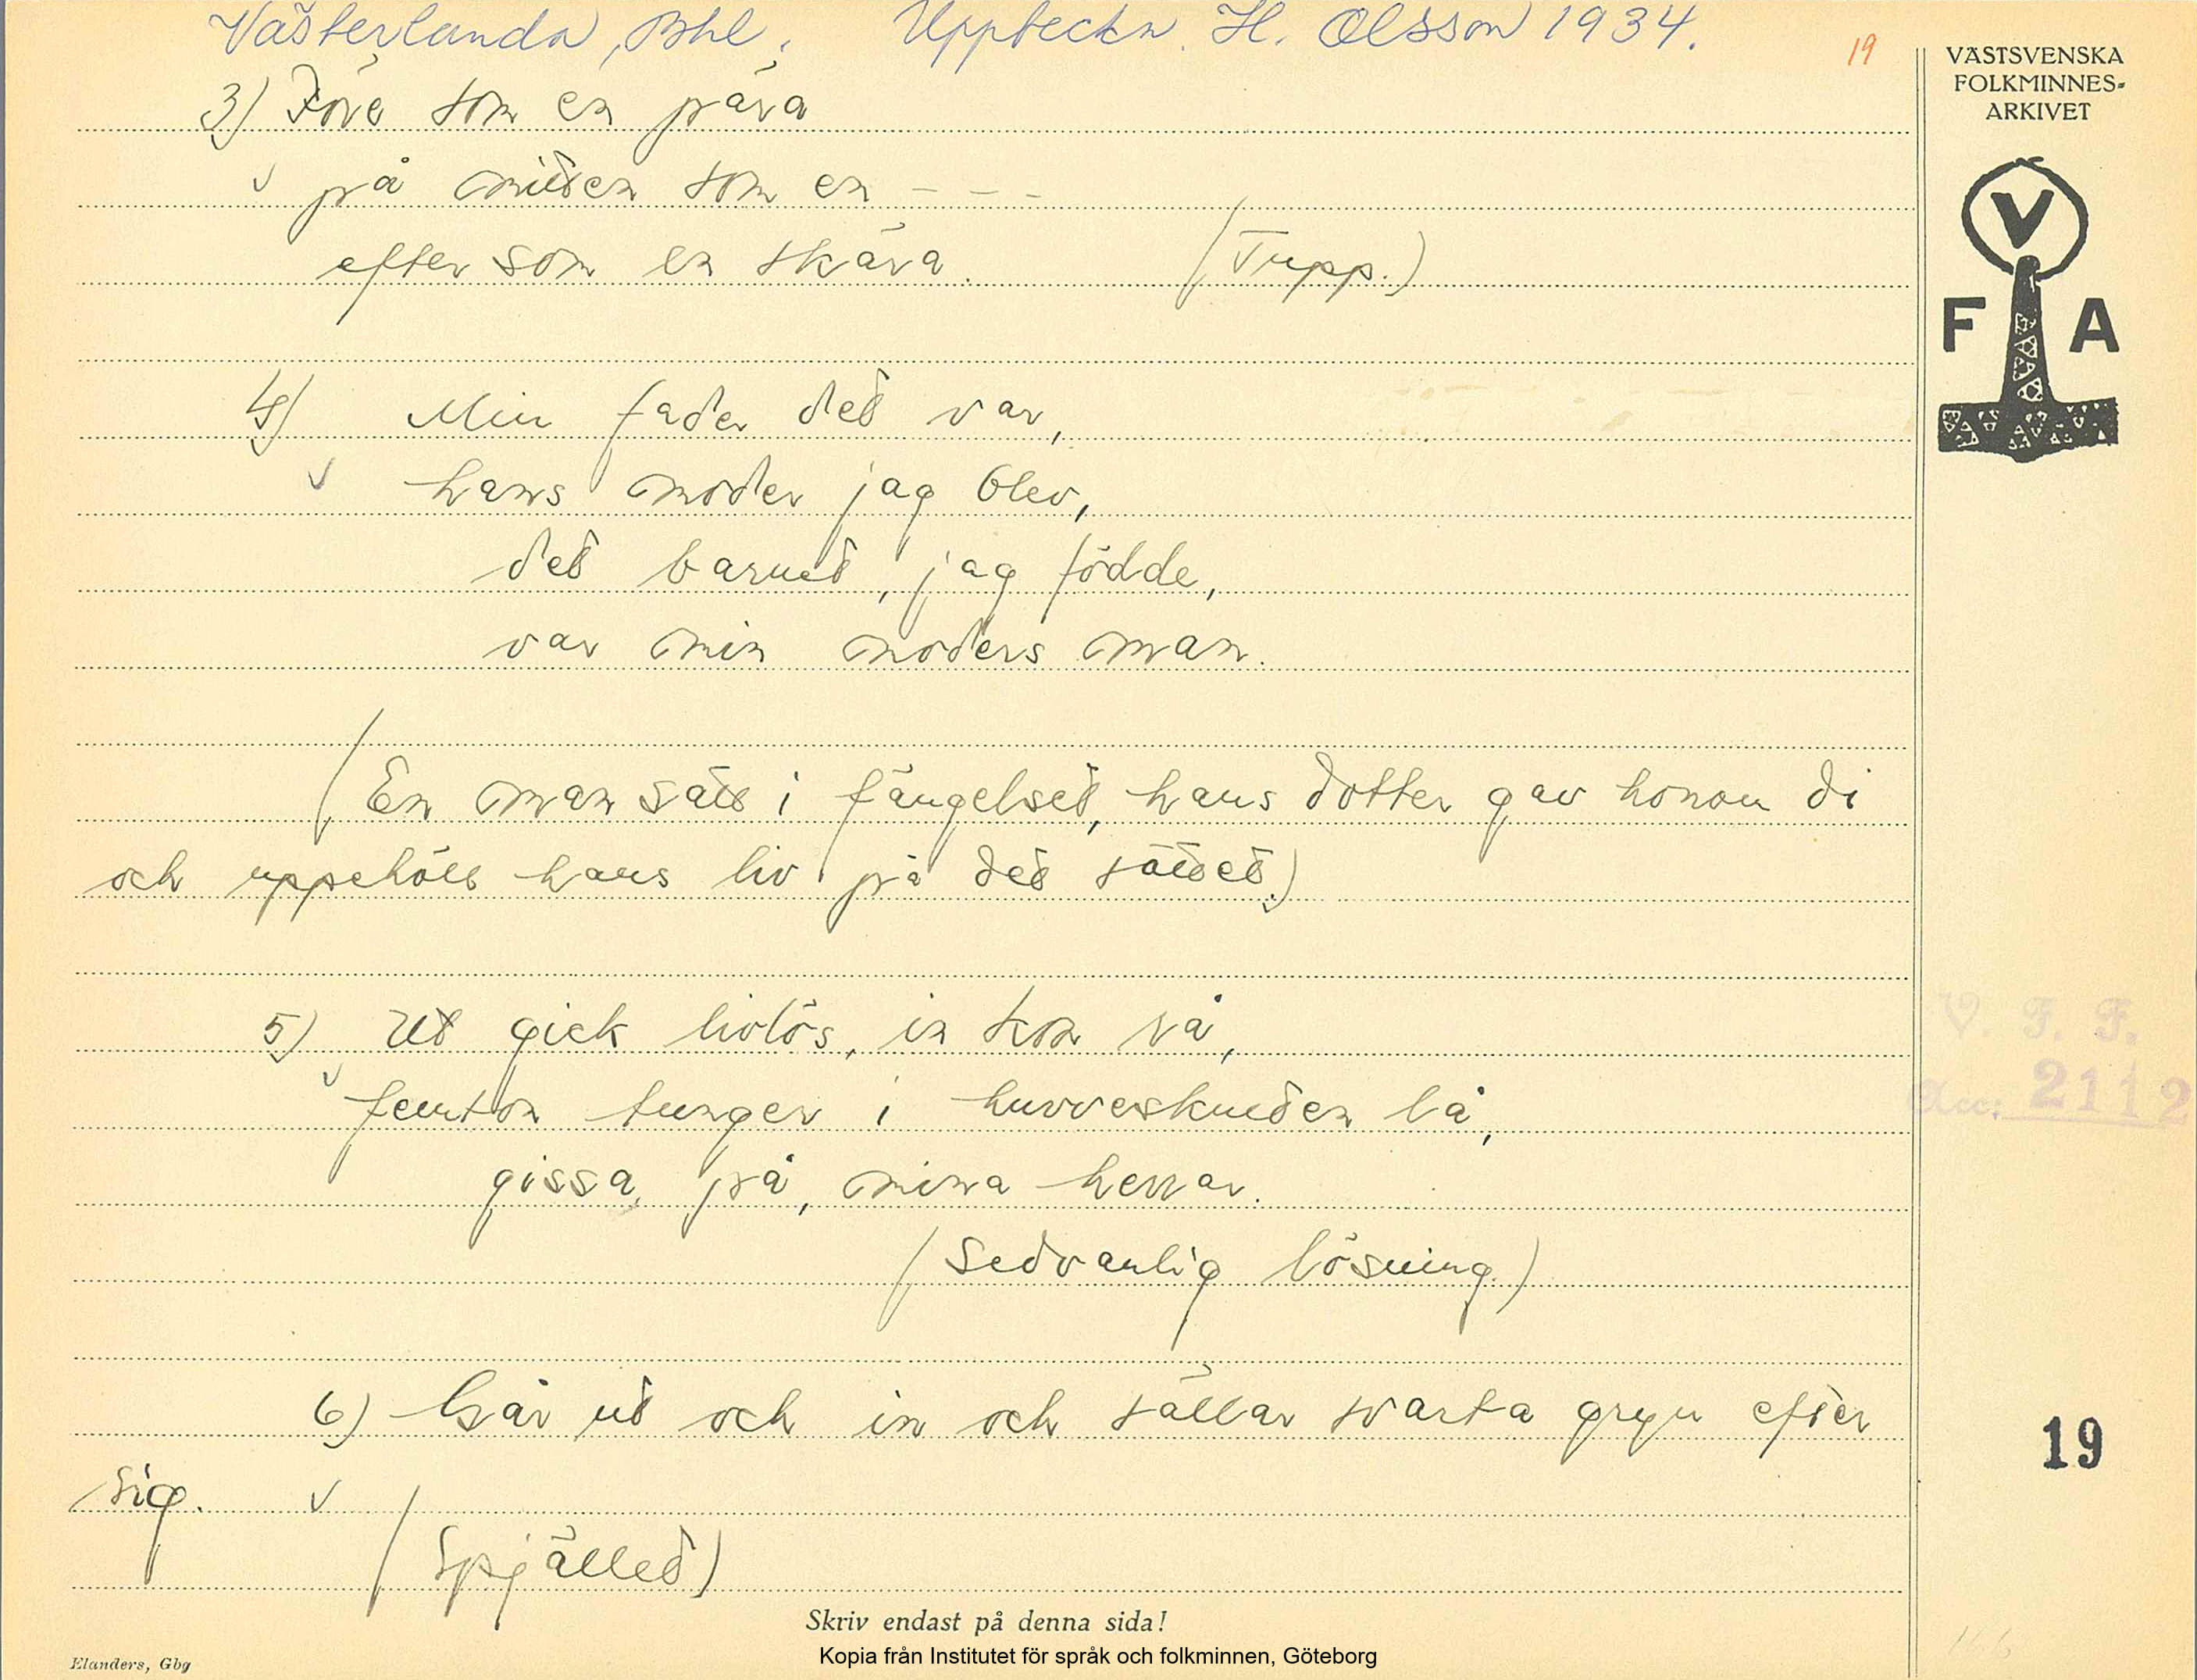 Västerlanda, Bhl. Uppteckn. H. Olsson 1934.
19
VÄSTSVENSKA
FOLKMINNES-
ARKIVET
V
F A
3) Före som en pära
på mitten som en - - -
efter som en skära. (Tupp.)
4) Min fader det var,
hans moder jag blev,
det barnet, jag födde,
var min moders man.
(En man satt i fängelset, hans dotter gav honom di
och uppehöll hans liv på det sättet.)
5) Ut gick livlös, in kom två,
femton tunger i huvveskutten lå,
gissa på, mina herrar.
(Sedvanlig lösning.)
V. F. F.
Acc: 2112
6) Går ut och in och sållar svarta gryn efter
sig.
(Spjället)
19
Skriv endast på denna sida!
Kopia från Institutet för språk och folkminnen, Göteborg
Elanders, Gbg